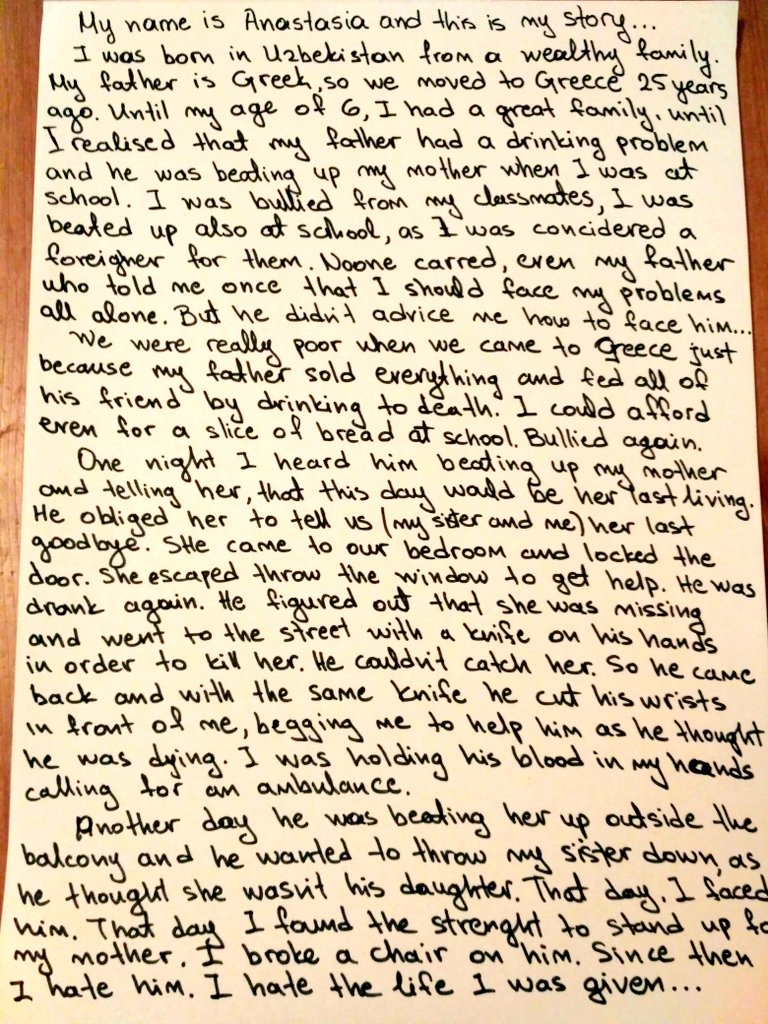 My name is Anastasia and this is my story...
I was born in Uzbekistan from a wealthy family.
My father is Greek, so we moved to Greece 25 years
ago. Until my age of 6, I had a great family, until
I realised that my father had a drinking problem
and he was beating up my mother when I was at
school. I was bullied from my classmates, I was
beated up also at school, as I was concidered a
foreigner for them. Noone carred, even my father
who told me once that I should face my problems
all alone. But he didn't advice me how to face him...
We were really poor when we came to Greece just
because my father sold everything and fed all of
his friend by drinking to death. I could afford
even for a slice of bread at school. Bullied again.
One night I heard him beating up my mother
and telling her, that this day would be her last living.
He obliged her to tell us (my sister and me) her last
goodbye. She came to our bedroom and locked the
door. She escaped throw the window to get help. He was
drank again. He figured out that she was missing
and went to the street with a knife on his hands
in order to kill her. He couldn't catch her. So he came
back and with the same knife he cut his wrists
in front of me, begging me to help him as he thought
he was dying. I was holding his blood in my hands
calling for an ambulance.
Another day he was beating her up outside the
balcony and he wanted to throw my sister down, as
he thought she wasn't his daughter. That day, I faced
him. That day I found the strenght to stand up fo
my mother. I broke a chair on him. Since then
I hate him. I hate the life I was given...